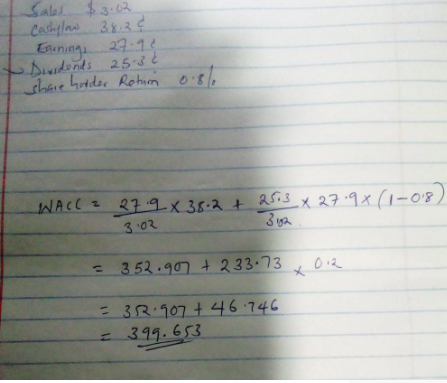 Sales $3.02
Cashflow 38.2 ¢
Earnings 27.9 ¢
Dividends 25.3 ¢
Share holder Return 0.8%
WACC = 27.9/3.02 × 38.2 + 25.3/3.02 × 27.9 × (1-0.8)
= 352.907 + 233.73 × 0.2
= 352.907 + 46.746
= 399.653